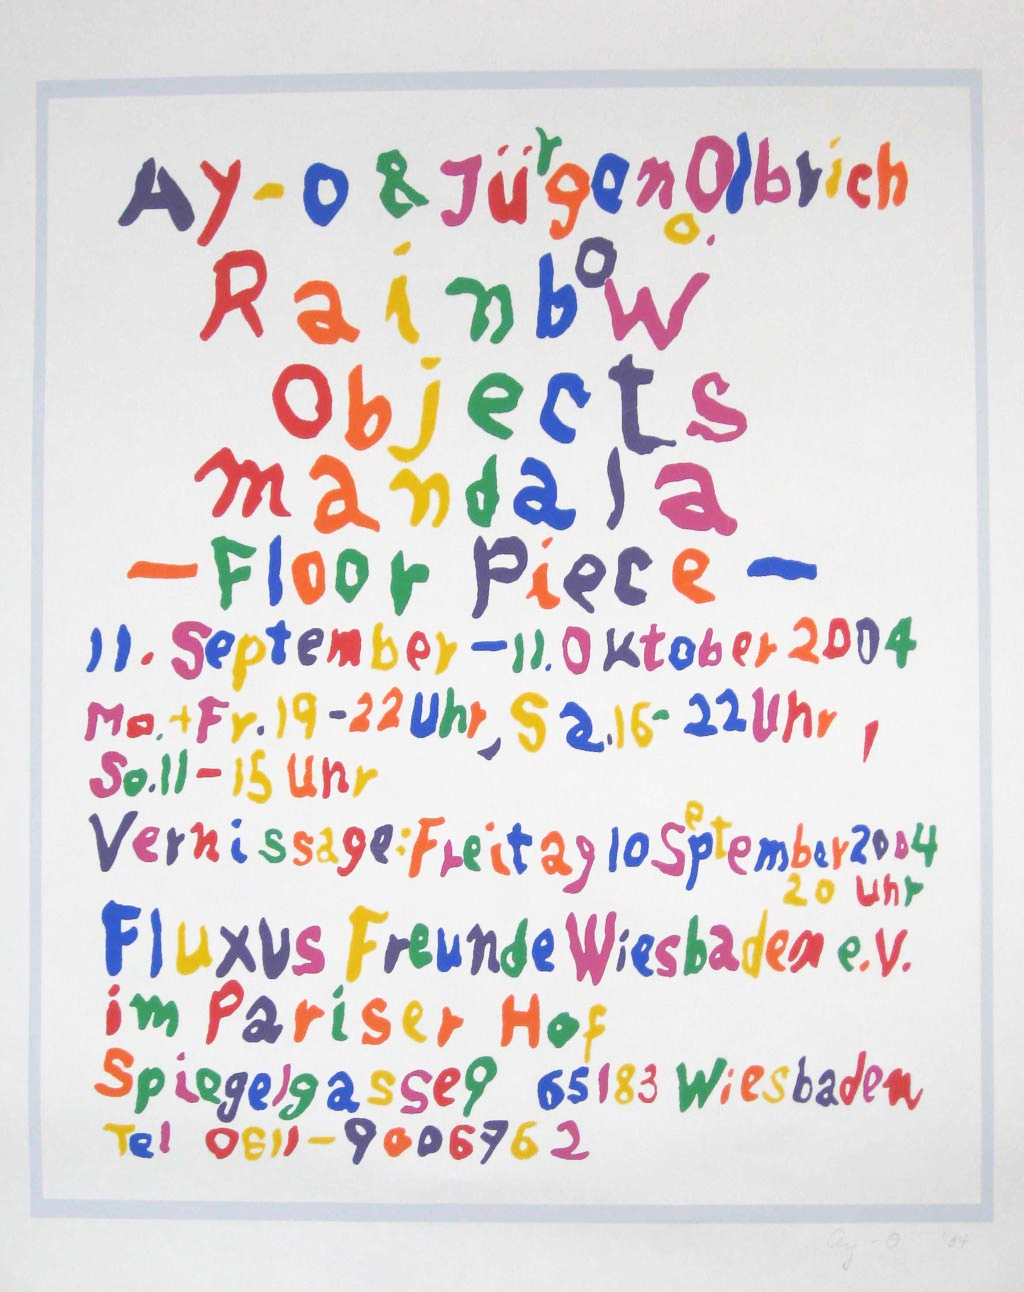 Ay-o & Jürgen Olbrich
Rainbow
Objects
mandala
— Floor Piece —
11. September – 11. Oktober 2004
Mo. + Fr. 19 - 22 Uhr, Sa. 16 - 22 Uhr,
So. 11 – 15 Uhr
Vernissage: Freitag 10 September 2004
20 Uhr
Fluxus Freunde Wiesbaden e.V.
im Pariser Hof
Spiegelgasse 9 65183 Wiesbaden
Tel 0611 – 9006762
Ay-O '04